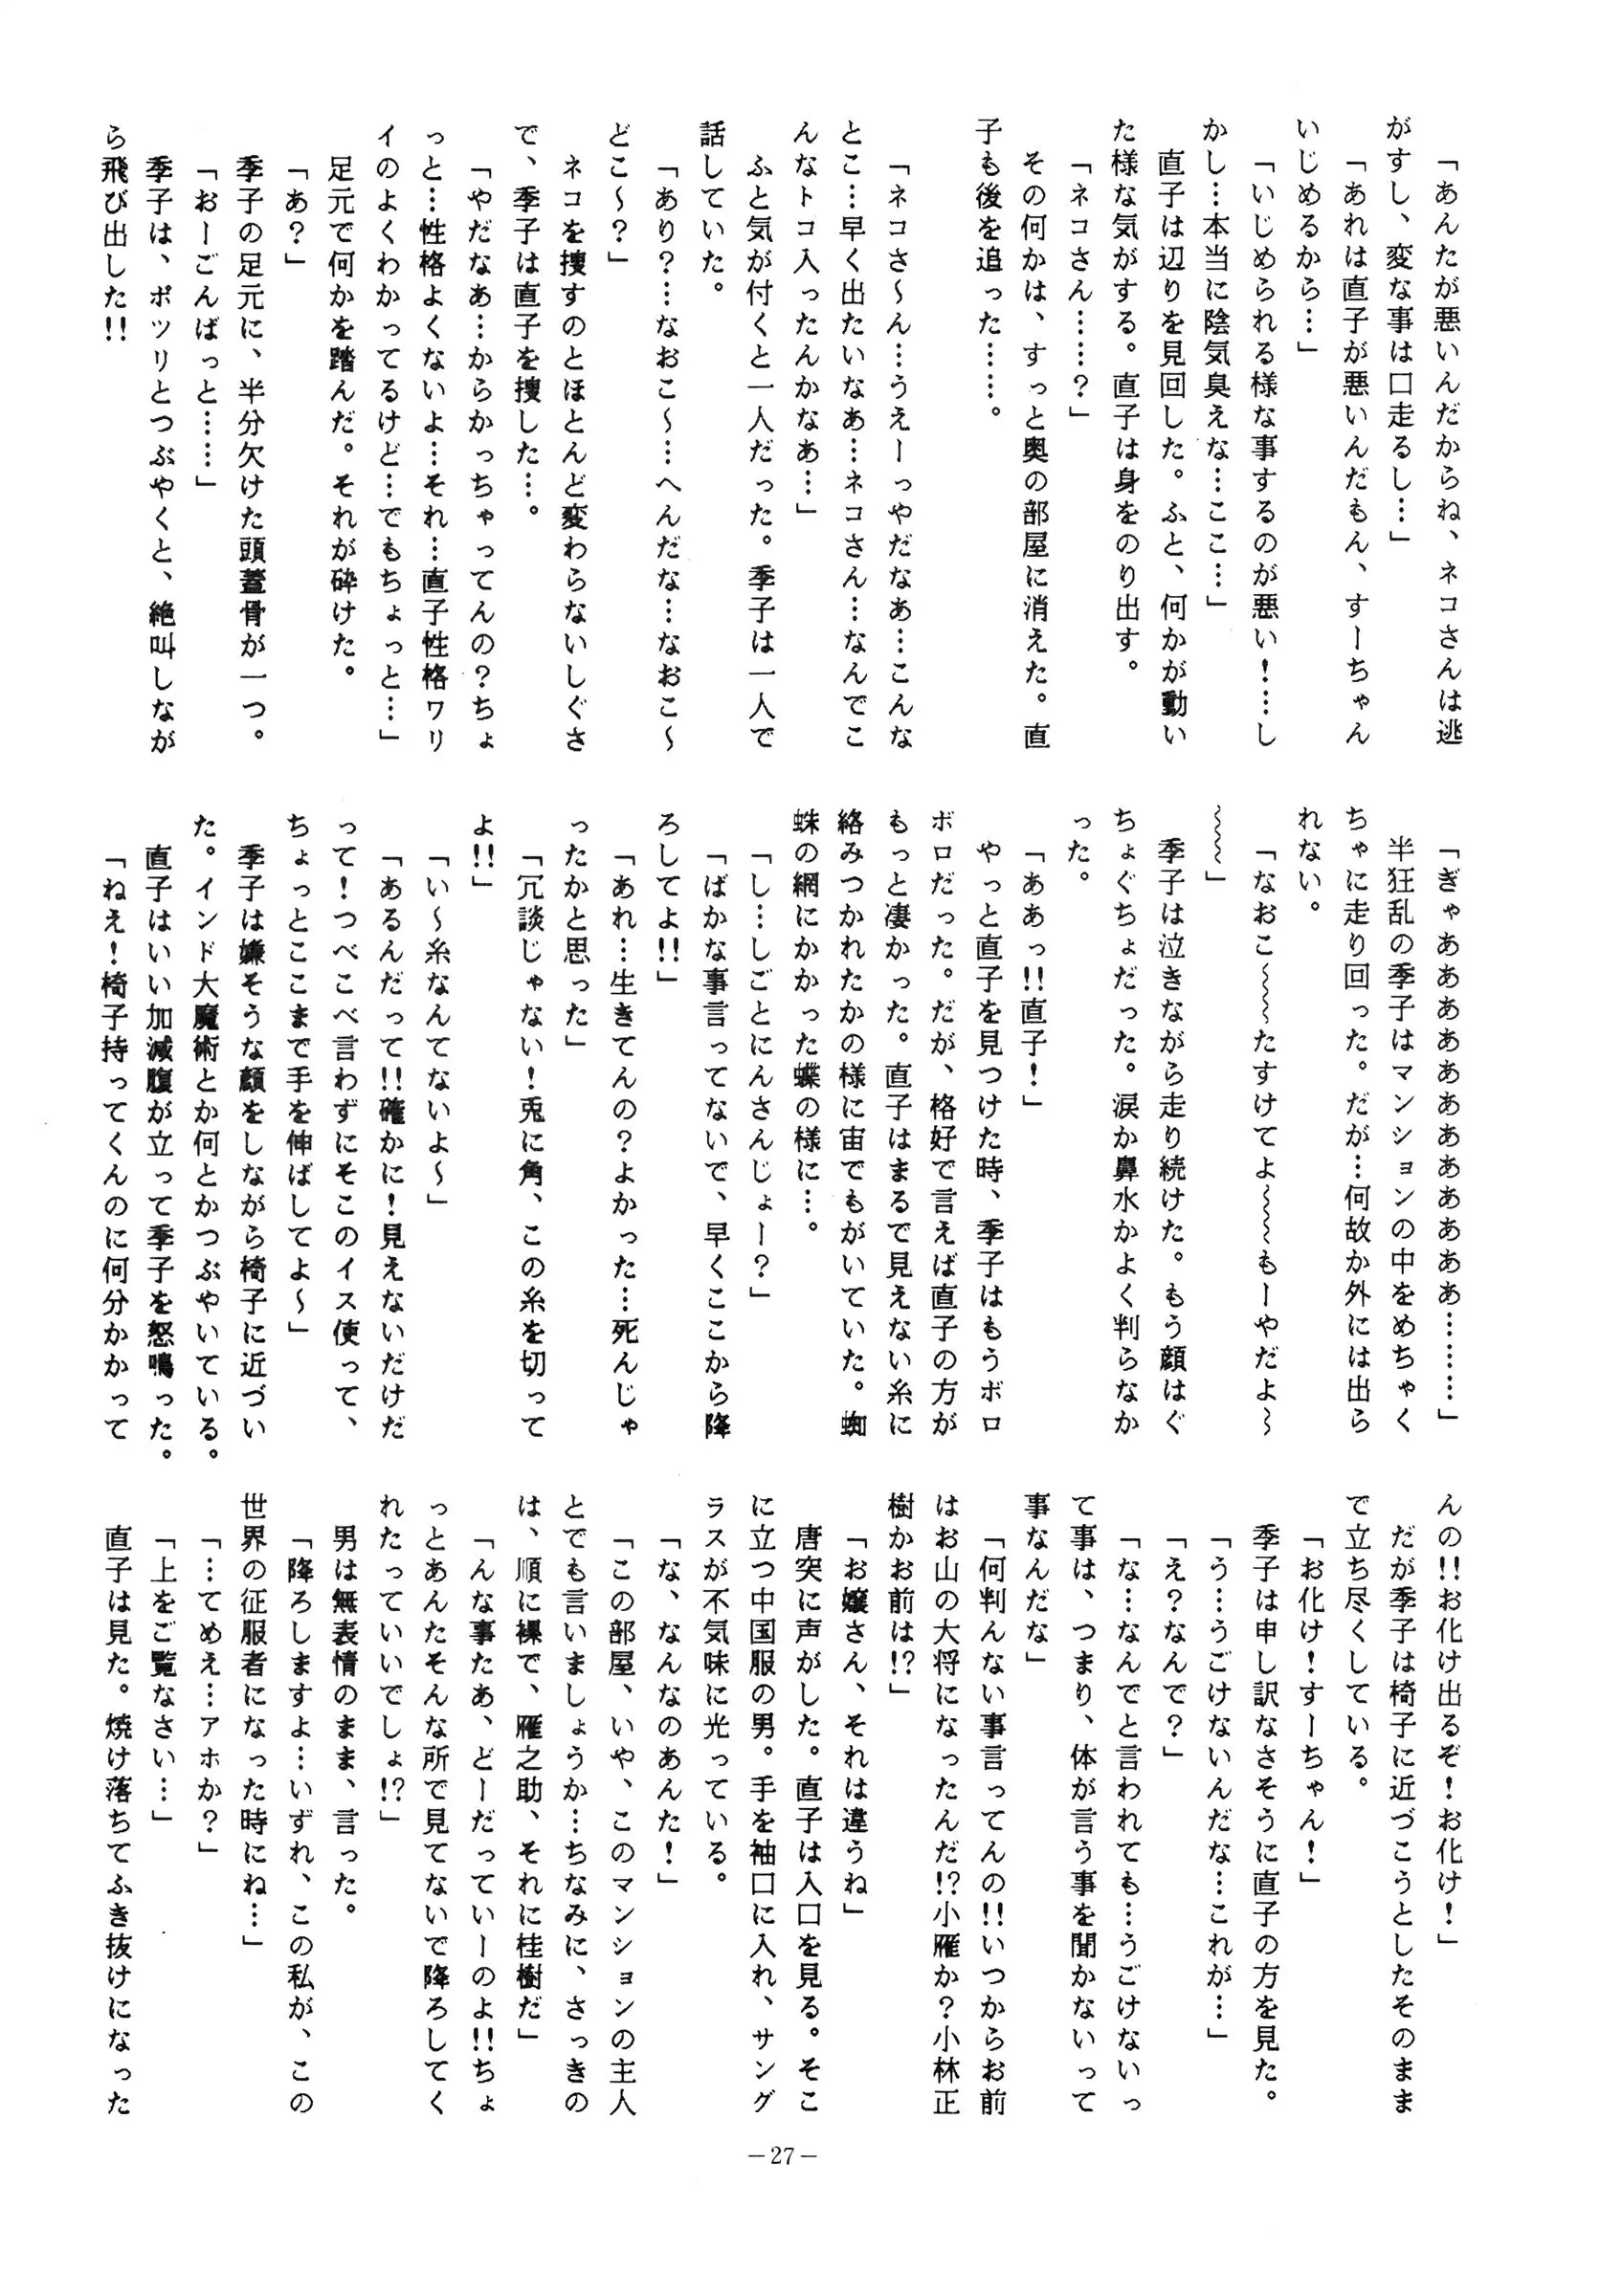 「あんたが悪いんだからね、ネコさんは逃
がすし、変な事は口走るし…」
「あれは直子が悪いんだもん、すーちゃん
いじめるから…」
「いじめられる様な事するのが悪い！…し
かし…本当に陰気臭えな…ここ…」
直子は辺りを見回した。ふと、何かが動い
た様な気がする。直子は身をのり出す。
「ネコさん……？」
その何かは、すっと奥の部屋に消えた。直
子も後を追った……。
「ネコさ～ん…うえーっやだなあ…こんな
とこ…早く出たいなあ…ネコさん…なんでこ
んなトコ入ったんかなあ…」
ふと気が付くと一人だった。季子は一人で
話していた。
「あり？…なおこ～…へんだな…なおこ～
どこ～？」
ネコを捜すのとほとんど変わらないしぐさ
で、季子は直子を捜した…。
「やだなあ…からかっちゃってんの？ちょ
っと…性格よくないよ…それ…直子性格ワリ
イのよくわかってるけど…でもちょっと…」
足元で何かを踏んだ。それが砕けた。
「あ？」
季子の足元に、半分欠けた頭蓋骨が一つ。
「おーごんばっと……」
季子は、ポツリとつぶやくと、絶叫しなが
ら飛び出した！！
「ぎゃあああああああああああああ………」
半狂乱の季子はマンションの中をめちゃく
ちゃに走り回った。だが…何故か外には出ら
れない。
「なおこ～～～たすけてよ～～～もーやだよ～
～～～」
季子は泣きながら走り続けた。もう顔はぐ
ちょぐちょだった。涙か鼻水かよく判らなか
った。
「ああっ！！直子！」
やっと直子を見つけた時、季子はもうボロ
ボロだった。だが、格好で言えば直子の方が
もっと凄かった。直子はまるで見えない糸に
絡みつかれたかの様に宙でもがいていた。蜘
蛛の網にかかった蝶の様に…。
「し…しごとにんさんじょー？」
「ばかな事言ってないで、早くここから降
ろしてよ！！」
「あれ…生きてんの？よかった…死んじゃ
ったかと思った」
「冗談じゃない！兎に角、この糸を切って
よ！！」
「い～糸なんてないよ～」
「あるんだって！！確かに！見えないだけだ
って！つべこべ言わずにそこのイス使って、
ちょっとここまで手を伸ばしてよ～」
季子は嫌そうな顔をしながら椅子に近づい
た。インド大魔術とか何とかつぶやいている。
直子はいい加減腹が立って季子を怒鳴った。
「ねえ！椅子持ってくんのに何分かかって
んの！！お化け出るぞ！お化け！」
だが季子は椅子に近づこうとしたそのまま
で立ち尽くしている。
「お化け！すーちゃん！」
季子は申し訳なさそうに直子の方を見た。
「う…うごけないんだな…これが…」
「え？なんで？」
「な…なんでと言われても…うごけないっ
て事は、つまり、体が言う事を聞かないって
事なんだな」
「何判んない事言ってんの！！いつからお前
はお山の大将になったんだ！？小雁か？小林正
樹かお前は！？」
「お嬢さん、それは違うね」
唐突に声がした。直子は入口を見る。そこ
に立つ中国服の男。手を袖口に入れ、サング
ラスが不気味に光っている。
「な、なんなのあんた！」
「この部屋、いや、このマンションの主人
とでも言いましょうか…ちなみに、さっきの
は、順に裸で、雁之助、それに桂樹だ」
「んな事たあ、どーだっていーのよ！！ちょ
っとあんたそんな所で見てないで降ろしてく
れたっていいでしょ！？」
男は無表情のまま、言った。
「降ろしますよ…いずれ、この私が、この
世界の征服者になった時にね…」
「…てめえ…アホか？」
「上をご覧なさい…」
直子は見た。焼け落ちてふき抜けになった
－27－